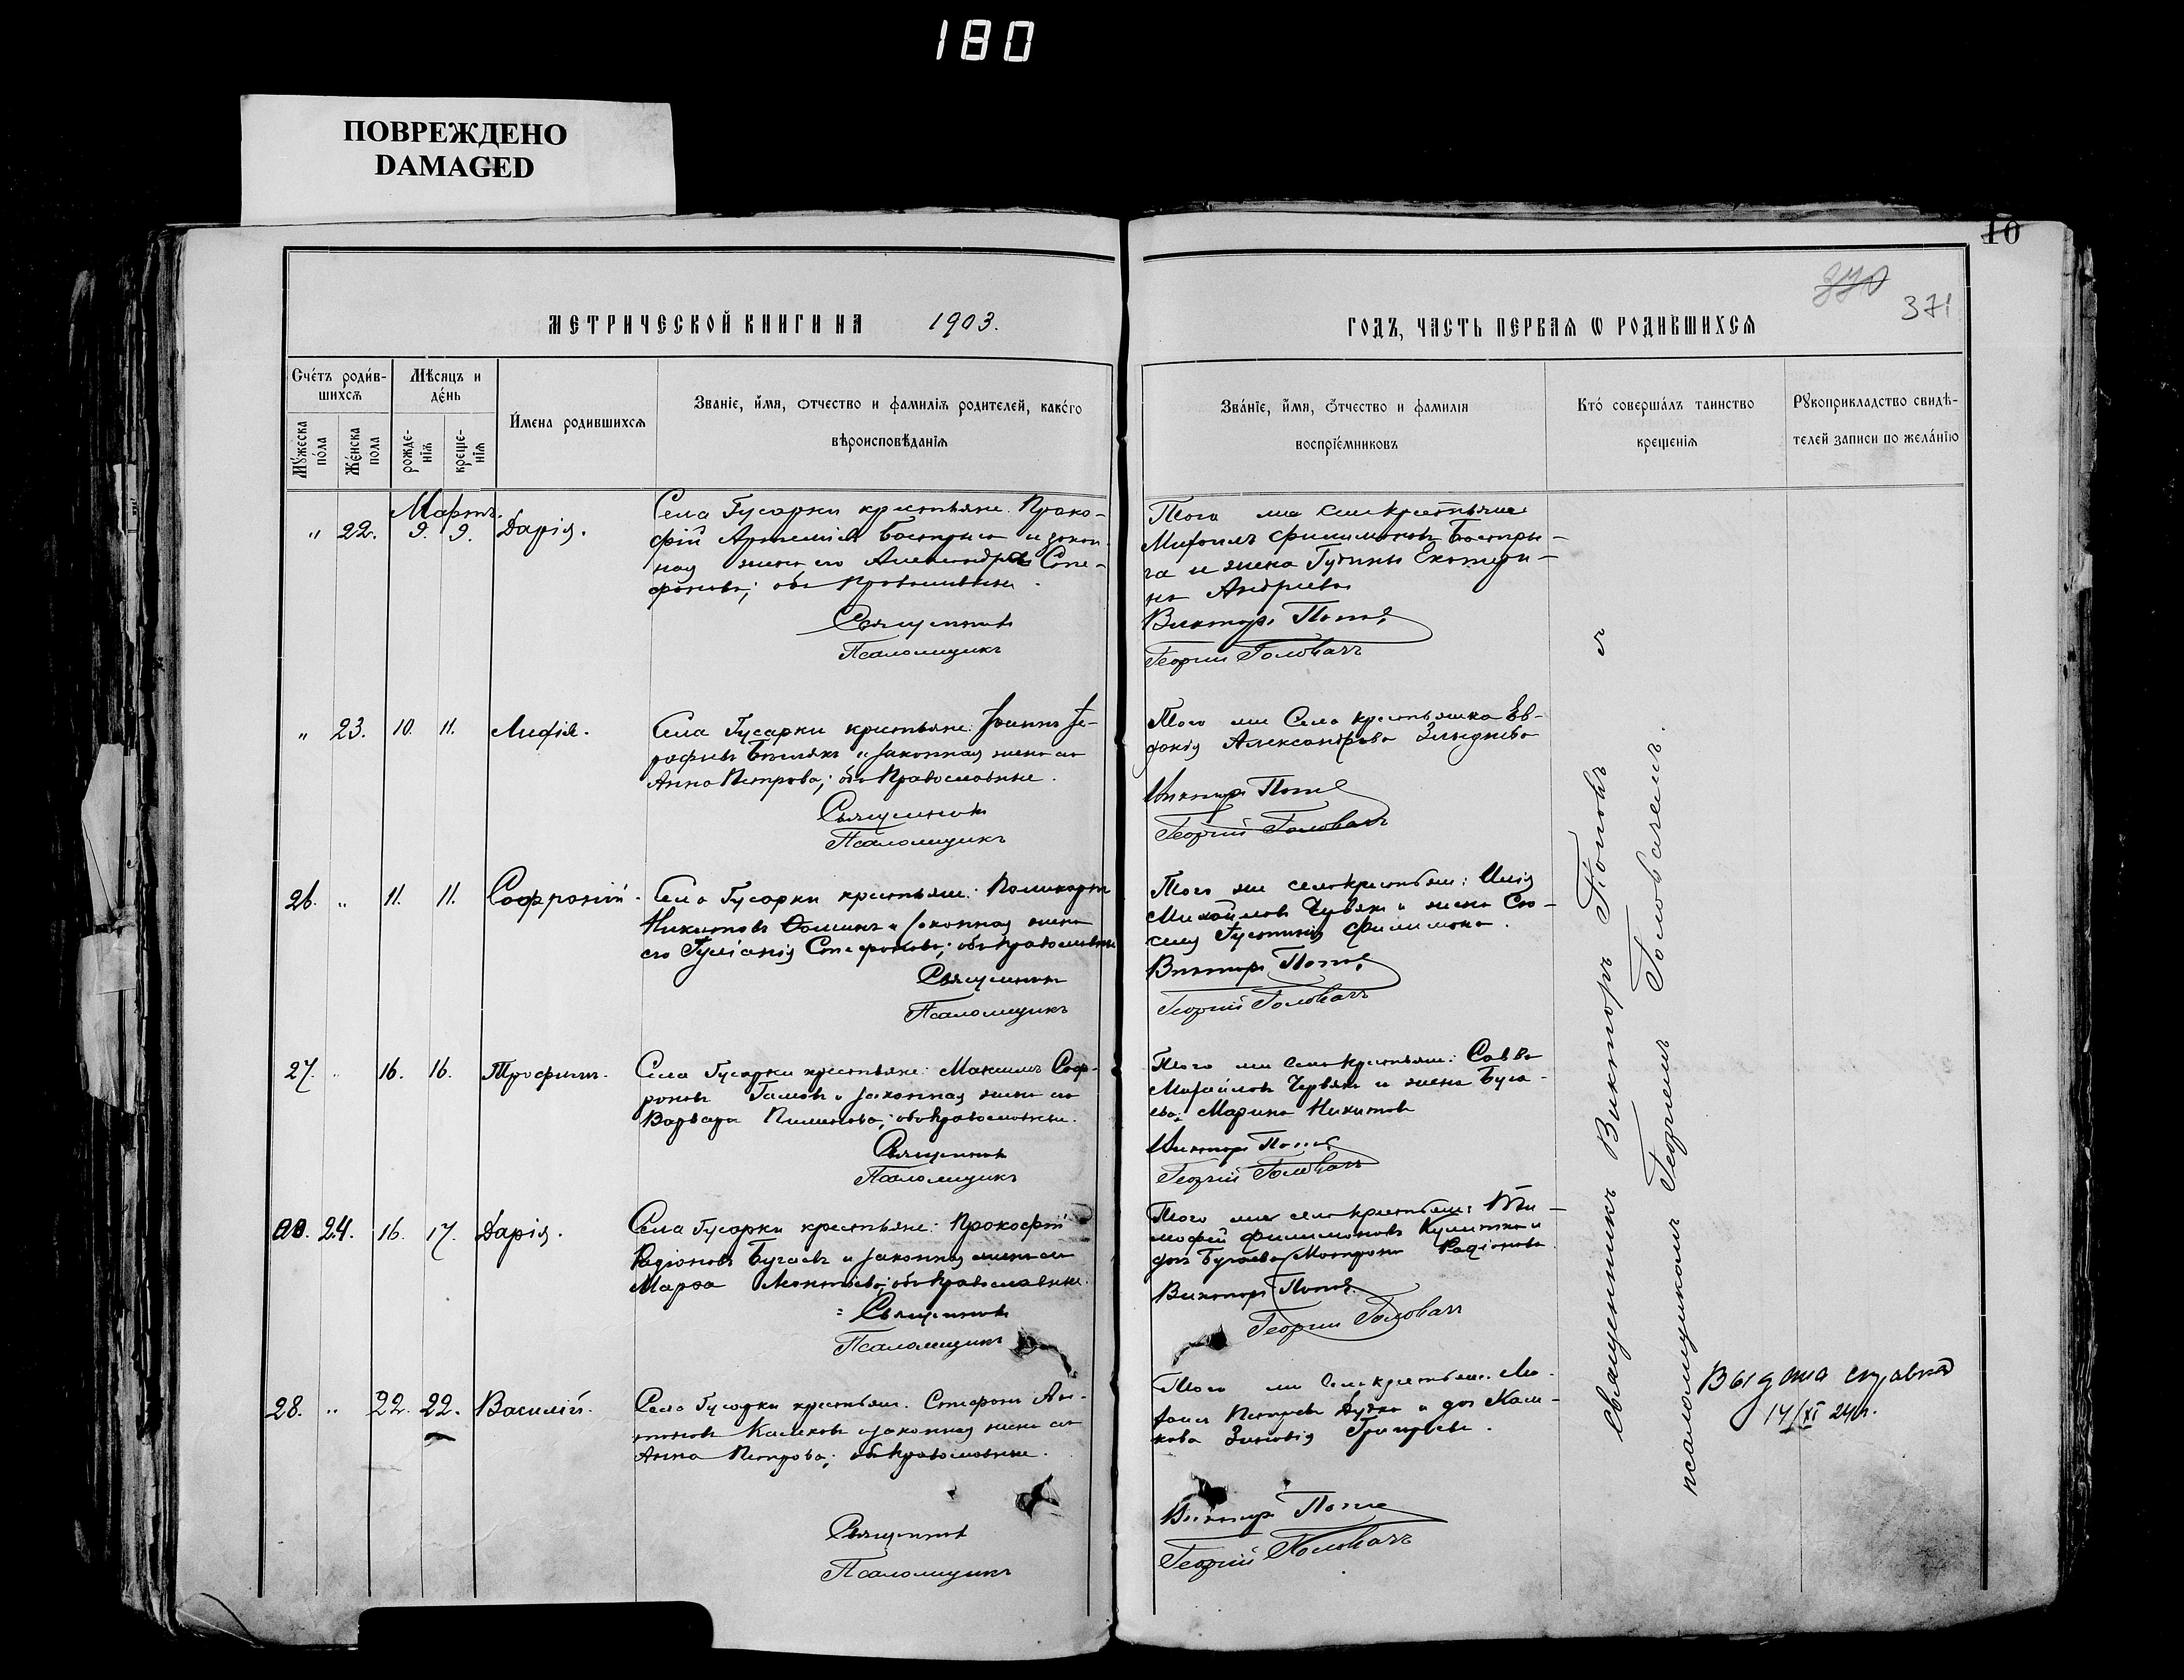 180
ПОВРЕЖДЕНО
DAMAGED
10
370
371
МЕТРИЧЕСКОЙ КНИГИ НА 1903.
ГОДЪ, ЧАСТЬ ПЕРВАЯ Ѡ РОДИВШИХСЯ
Счетъ родив-
шихся
Мѣсяцъ и
день
Имена родившихся
Званіе, имя, отчество и фамилія родителей, какого
вѣроисповѣданія
Мужеска
пола
Женска
пола
рожде-
нія
креще-
нія
Званіе, имя, отчество и фамилія
воспріемниковъ
Кто совершалъ таинство
крещенія
Рукоприкладство свидѣ-
телей записи по желанію
Мартъ.
" 22. 9. 9. Дарія.
Села Гусарки крестьяне: Проко-
фій и закон
ная жена его Александра Сте-
фанова; оба Православные.
Священникъ
Псаломщикъ
Того же села крестьяне
Михаилъ Филимоновъ
га и жена Екатери-
на Андреева
Викторъ Поповъ
Георгій Головачъ
" 23. 10. 11. Лидія.
Села Гусарки крестьяне: Іоаннъ
и законная жена его
Анна Петрова; оба Православные.
Священникъ
Псаломщикъ
Того же Села крестьянка Ев-
докія Александрова
Викторъ Поповъ
Георгій Головачъ
26. " 11. 11. Софроній.
Села Гусарки крестьяне: Поликарпъ
Никитовъ и законная жена
его Іуліанія Стефанова; оба православные
Священникъ
Псаломщикъ
Того же села крестьяне: Илія
Михайловъ Червякъ и жена
Филимонова.
Викторъ Поповъ
Георгій Головачъ
27. " 16. 16. Трофимъ.
Села Гусарки крестьяне: Максимъ Соф-
роновъ и законная жена его
Варвара Пименова; оба православные.
Священникъ
Псаломщикъ
Того же села крестьяне: Савва
Михайловъ Червякъ и жена Буга-
ева Марина Никитова
Викторъ Поповъ
Георгій Головачъ
24. 16. 17. Дарія.
Села Гусарки крестьяне: Прокофій
Радіоновъ Бугаевъ и законная жена его
Марѳа Леонтьева; оба православные.
Священникъ
Псаломщикъ
Того же села крестьяне: Ти-
мофей Филимоновъ и
дочь Бугаева Матрона Радіонова
Викторъ Поповъ
Георгій Головачъ
28. " 22. 22. Василій.
Села Гусарки крестьяне: Стефанъ Ан-
тоновъ и законная жена его
Анна Петрова; оба православные.
Священникъ
Псаломщикъ
Того же села крестьяне:
Петровъ и дочь
кова Зиновія Григорьева.
Викторъ Поповъ
Георгій Головачъ
Священникъ Викторъ Поповъ съ
псаломщикомъ Георгіемъ Головачемъ.
Выдана справка
14/XI 24 г.